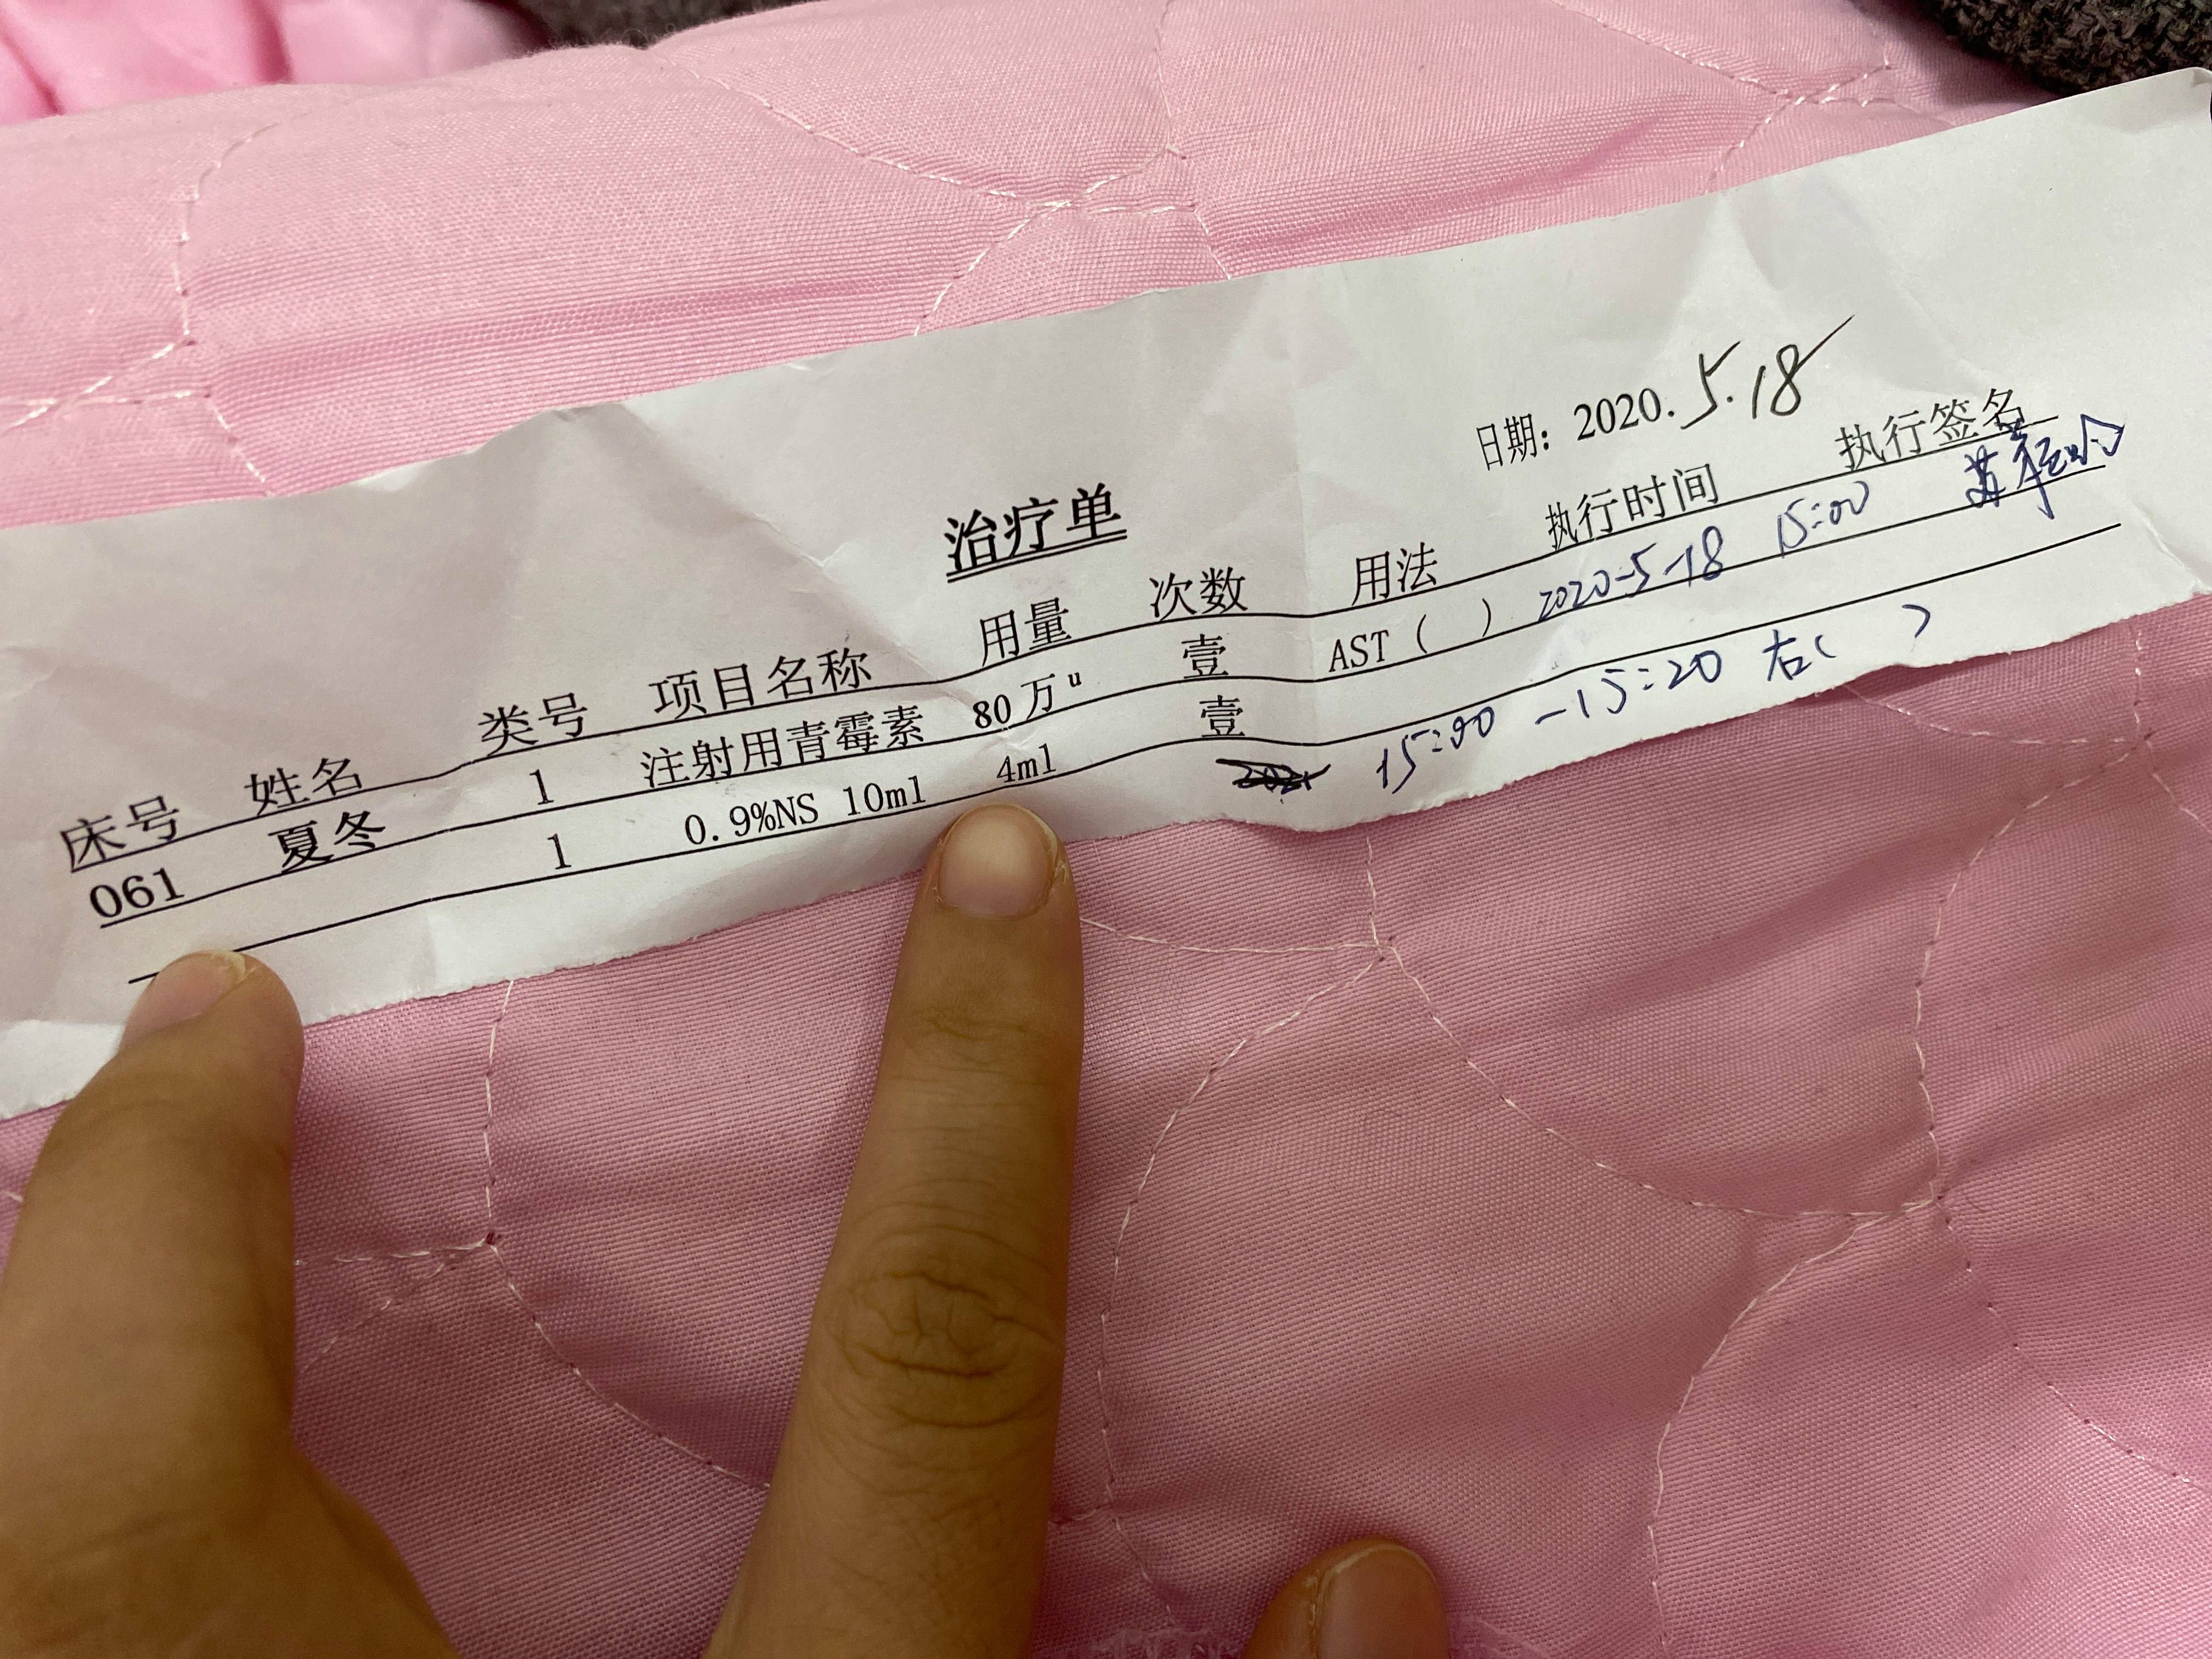 治疗单
日期: 2020.5.18
床号 姓名 类号 项目名称 用量 次数 用法 执行时间 执行签名
061 夏冬 1 注射用青霉素 80万u 壹 AST ( ) 2020-5-18 15:00
1 0.9%NS 10ml 4ml 壹
15:00-15:20 右( )